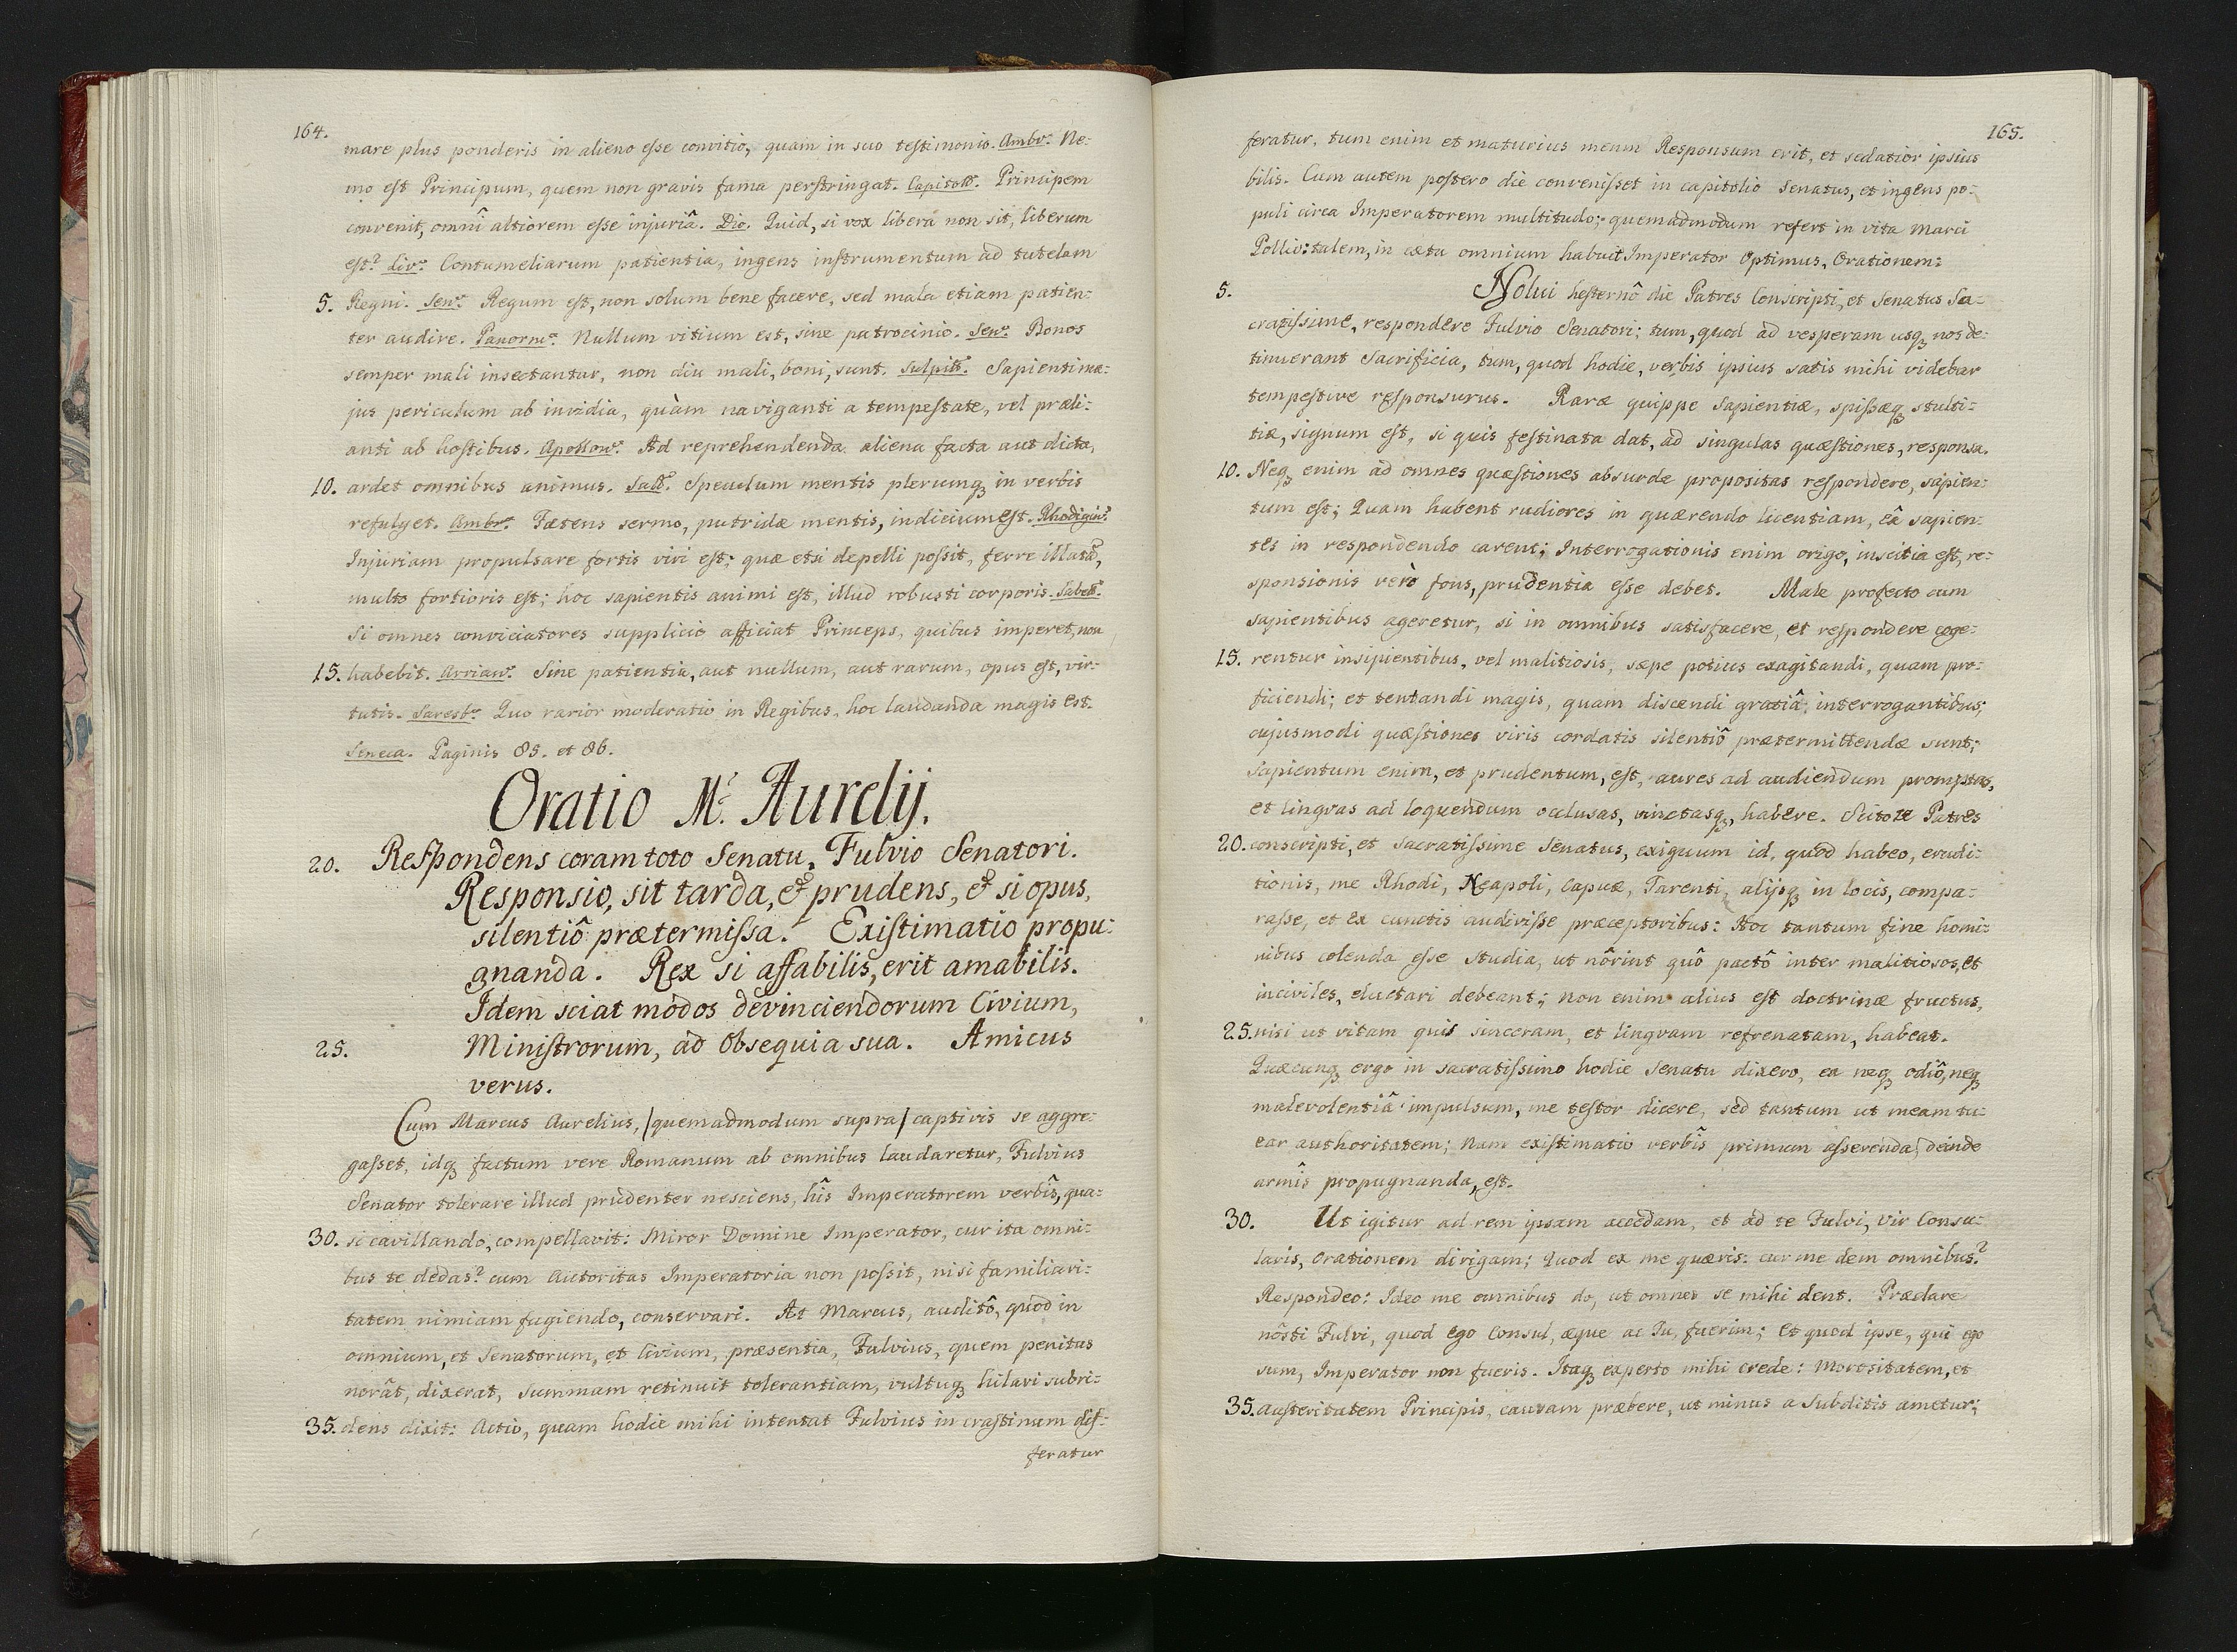 164.
mare plus ponderis in alieno esse convitio, quam in suo testimonio. Ambr. Ne:
mo est Principum, quem non gravis fama perstringat. Capitoll. Principem
convenit, omnî altiorem esse injuriâ. Dio. Quid, si vox libera non sit, liberum
est? Liv. Contumeliarum patientia, ingens instrumentum ad tutelam
5. Regni. Sen. Regum est, non solum bene facere, sed mala etiam patien:
ter audire. Panorm. Nullum vitium est, sine patrocinio. Sen. Bonos
semper mali insectantur, non diu mali, boni, sunt. Sulpit. Sapienti ma:
jus periculum ab invidia, quàm naviganti a tempestate, vel præli:
anti ab hostibus. Apollon. Ad reprehendenda aliena facta aut dicta,
10. ardet omnibus animus. Sall. Speculum mentis plerumq in verbis
refulget. Ambr. Fætens sermo, putridæ mentis, indicium est. Rhodigin.
Injuriam propulsare fortis viri est; quæ etsi depelli possit, ferre illatã,
multo fortioris est; hoc sapientis animi est, illud robusti corporis. Sabell.
Si omnes conviciatores supplicio afficiat Princeps, quibus imperet, non
15. habebit. Arrian. Sine patientia, aut nullum, aut rarum, opus est, vir:
tutis. Saresb. Quo rarior moderatio in Regibus, hoc laudanda magis est.
Seneca. Paginis 85. et 86.
Oratio M. Aurelij.
20. Respondens coram toto Senatu, Fulvio Senatori.
Responsio, sit tarda, & prudens, & si opus,
silentiô prætermissa. Existimatio propu:
gnanda. Rex si affabilis, erit amabilis.
Idem sciat modos devinciendorum Civium,
25. Ministrorum, ad Obsequia sua. Amicus
verus.
Cum Marcus Aurelius, /quemadmodum supra/ captivis se aggre:
gasset, idq factum vere Romanum ab omnibus laudaretur, Fulvius
Senator tolerare illud prudenter nesciens, hîs Imperatorem verbîs, qua:
30. si cavillando, compellavit: Miror Domine Imperator, cur ita omni:
bus te dedas? cum Autoritas Imperatoria non possit, nisi familiari:
tatem nimiam fugiendo, conservari. At Marcus, auditô, quod in
omnium, et Senatorum, et Civium, præsentia, Fulvius, quem penitus
norât, dixerat, summam retinuit tolerantiam, vultuq hilari subri:
35. dens dixit: Actio, quam hodie mihi intentat Fulvius in crastinum dif:
feratur
165.
feratur, tum enim et maturius meum Responsum erit, et sedatior ipsius
bilis. Cum autem postero die convenisset in capitolio Senatus, et ingens po:
puli circa Imperatorem multitudo; quemadmodum refert in vita Marci
Pollio: talem, in cætu omnium habuit Imperator Optimus, Orationem:
5. Nolui hesternô die Patres Conscripti, et Senatus Sa:
cratissime, respondere Fulvio Senatori: tum, quod ad vesperam usq nos de:
tinuerant Sacrificia, tum, quod hodie, verbis ipsius satis mihi videbar
tempestive responsurus. Raræ quippe Sapientiæ, spissæq stulti:
tiæ, signum est, si quis festinata dat, ad singulas quæstiones, responsa.
10. Neq enim ad omnes quæstiones absurde propositas respondere, sapien:
tum est; Quam habent rudiores in quærendo licentiam, eâ sapien:
tes in respondendo carent; Interrogationis enim origo, inscitia est, re:
sponsionis verò fons, prudentia esse debet. Male profecto cum
sapientibus ageretur, si in omnibus satisfacere, et respondere coge:
15. rentur insipientibus, vel malitiosis, sæpe potius exagitandi, quam pro:
ficiendi; et tentandi magis, quam discendi gratiâ, interrogantibus;
cujusmodi quæstiones viris cordatis silentiô prætermittendæ sunt;
Sapientum enim, et prudentum, est, aures ad audiendum promptas,
et lingvas ad loquendum occlusas, vinctasq, habere. Scitote Patres
20. conscripti, et Sacratissime Senatus, exiguum id, quod habeo, erudi:
tionis, me Rhodi, Neapoli, Capuæ, Tarenti, alijsq in locis, compa:
rasse, et ex cunctis audivisse præceptoribus: Hoc tantum fine homi:
nibus colenda esse studia, ut nôrint quô pactô inter malitiosos, et
inciviles, eluctari debeant; non enim alius est doctrinæ fructus,
25. nisi ut vitam quis sinceram, et lingvam refrenatam, habeat.
Quæcunq ergo in sacratissimo hodie Senatu dixero, ea neq odiô, neq
malevolentiâ impulsum, me testor dicere, sed tantum ut meam tu:
ear authoritatem; Nam existimatio verbîs primum asserenda, deinde
armîs propugnanda, est.
30. Ut igitur ad rem ipsam accedam, et ad te Fulvi, Vir Consu:
laris, Orationem dirigam; Quod ex me quæris: cur me dem omnibus?
Respondeo: Ideo me omnibus do, ut omnes se mihi dent. Præclare
nôsti Fulvi, quod ego Consul, æque ac Tu, fuerim; et quod ipse, qui ego
sum, Imperator non fueris. Itaq experto mihi crede: Morositatem, et
35. austeritatem Principis, causam præbere, ut minus a Subditis ametur;